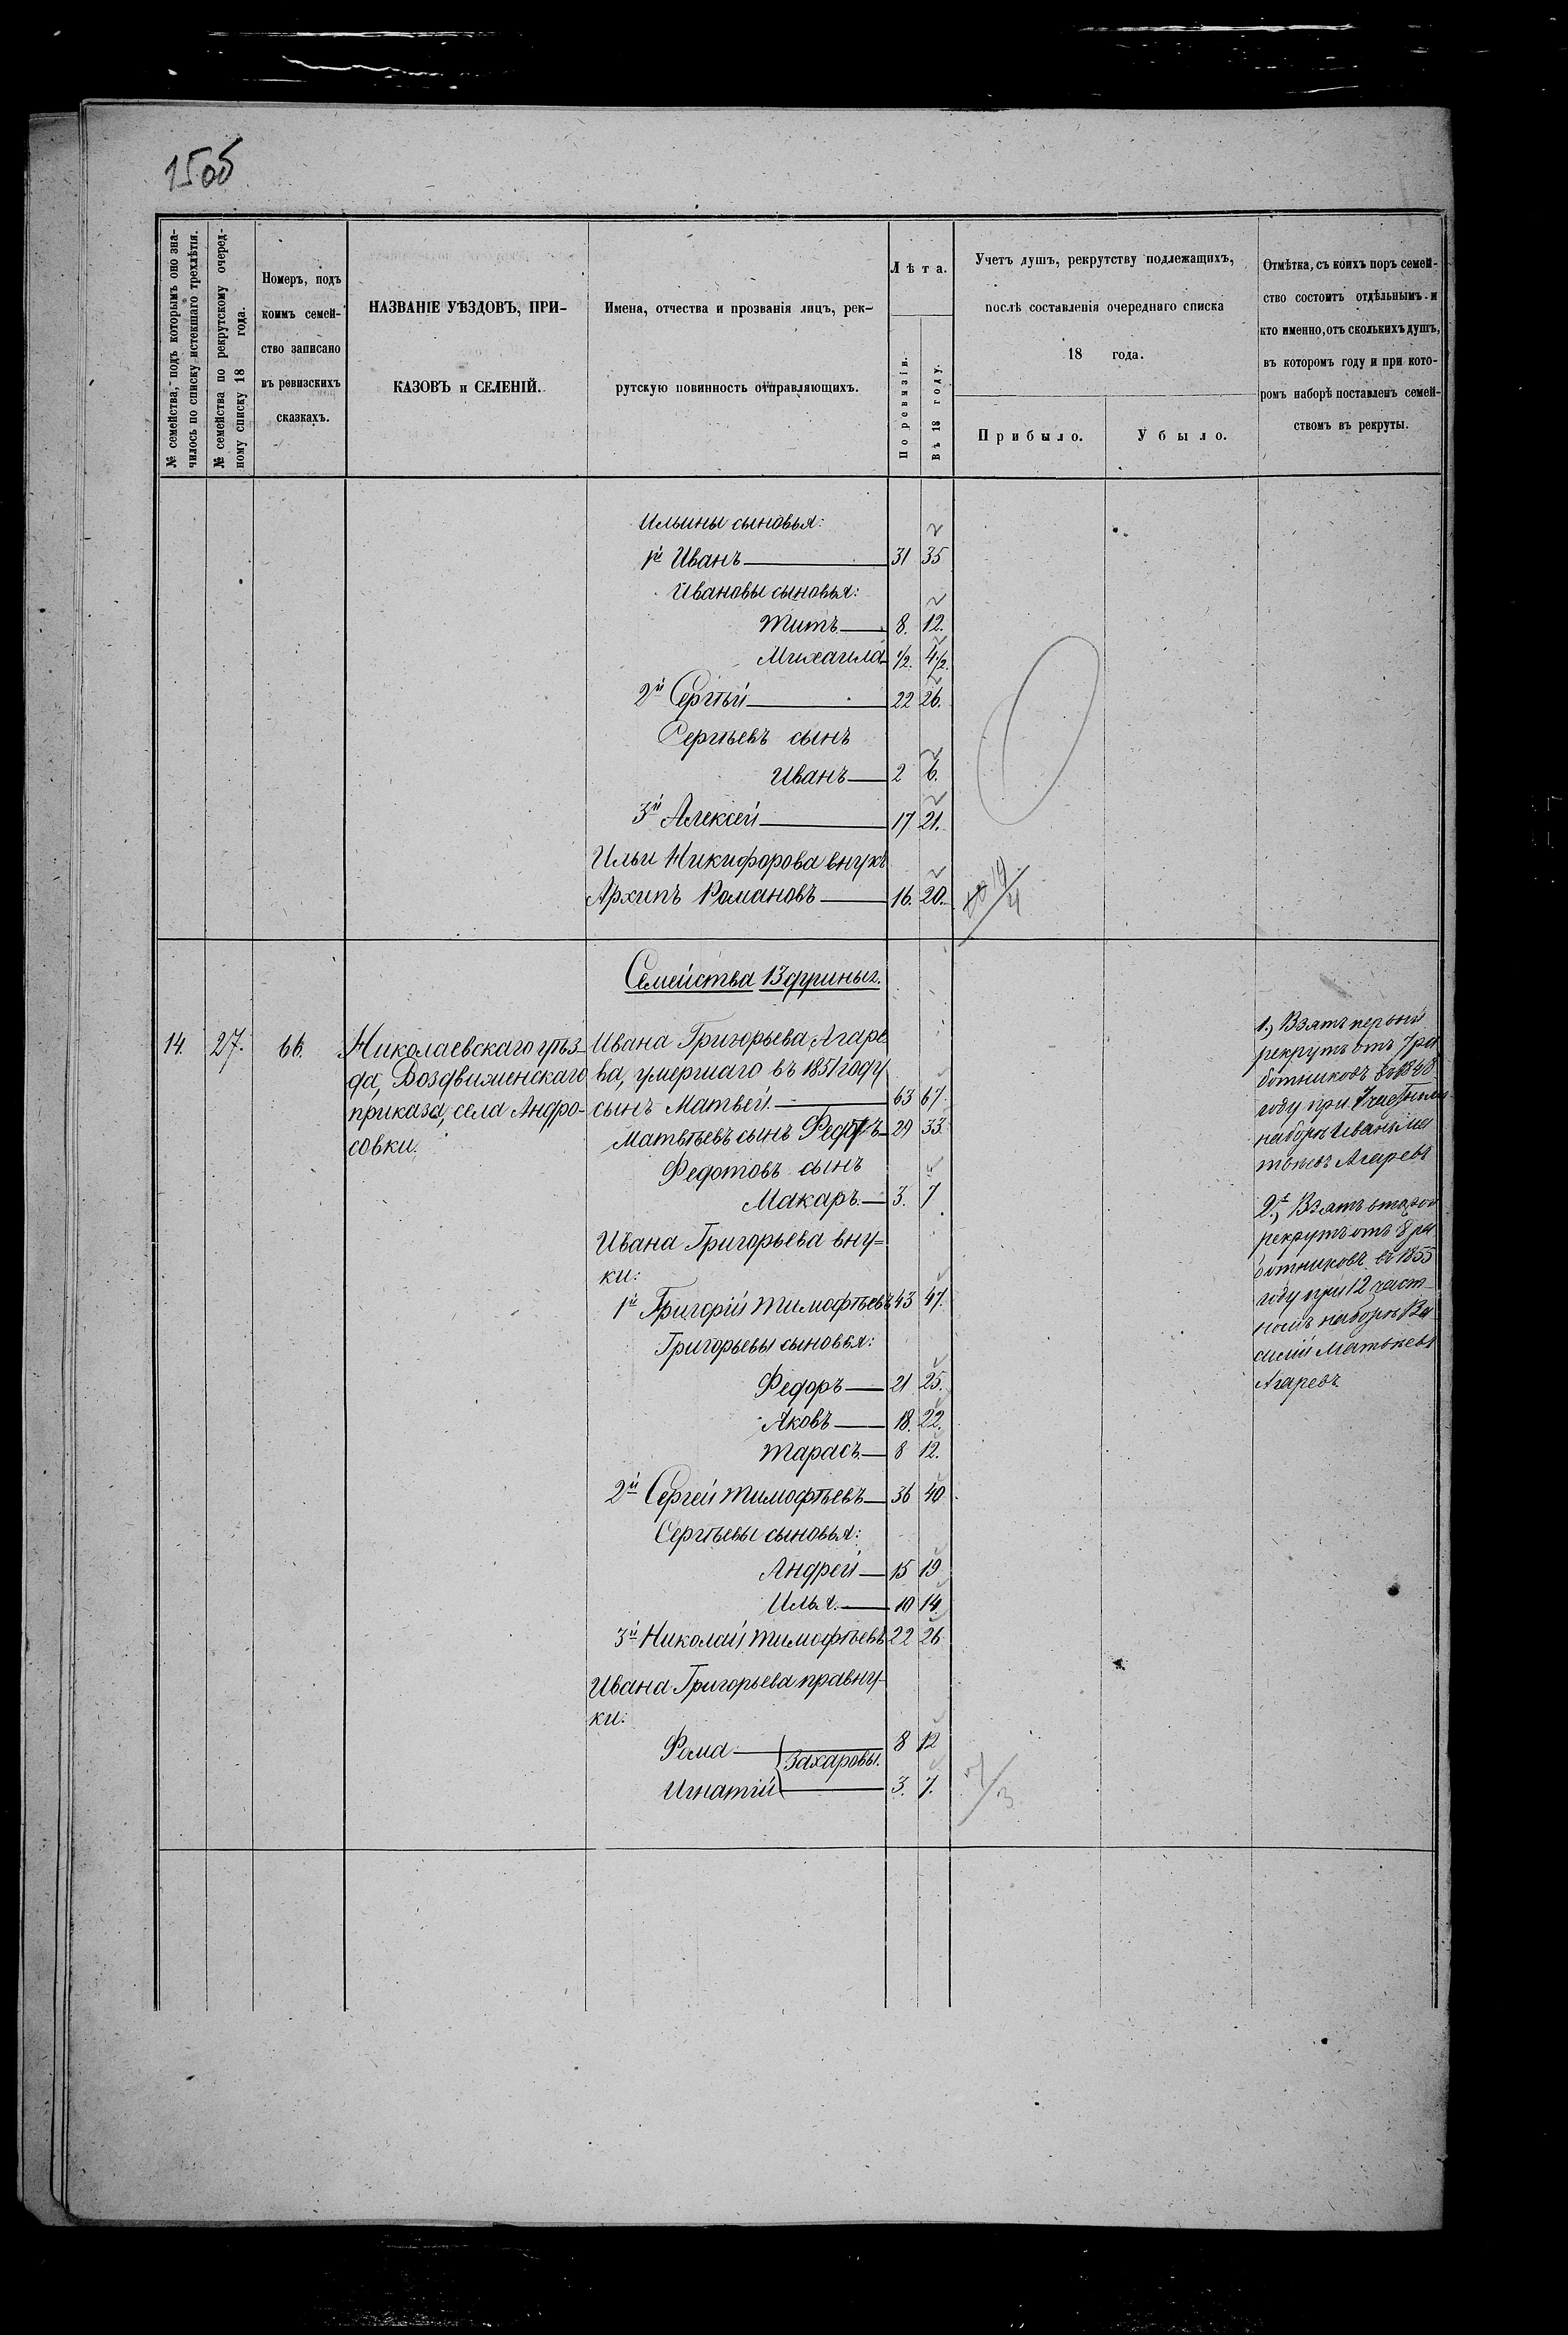 150б
№ семейства, подъ которымъ оно зна-
чилось по списку истекшаго трехлѣтія.
№ семейства по рекрутскому очеред-
ному списку 18 года.
Номеръ, подъ
коимъ семей-
ство записано
въ ревизскихъ
сказкахъ.
НАЗВАНІЕ УѢЗДОВЪ, ПРИ-
КАЗОВЪ и СЕЛЕНІЙ.
Имена, отчества и прозванія лицъ, рек-
рутскую повинность отправляющихъ.
Лѣта.
По ревизіи.
Въ 18 году.
Учетъ душъ, рекрутству подлежащихъ,
послѣ составленія очереднаго списка
18 года.
Прибыло.
Убыло.
Отмѣтка, съ коихъ поръ семей-
ство состоитъ отдѣльнымъ и
кто именно, отъ сколькихъ душъ,
въ которомъ году и при кото-
ромъ наборѣ поставленъ семей-
ствомъ въ рекруты.
Ильины сыновья:
1й Иванъ 31 35
Ивановы сыновья:
Титъ 8. 12.
Михаила 1/2. 4 1/2.
2й Сергѣй 22 26.
Сергѣевъ сынъ
Иванъ 2 6.
3й Алексей 17 21.
Ильи Никифорова внукъ
Архипъ Романовъ 16. 20.
Семейства 13
14. 27. 66.
Николаевскаго уѣз-
да, Воздвиженскаго
приказа, села Андро-
совки.
Ивана Григорьева Агаре
ва, умершаго въ 1851 году
сынъ Матвей 63 67.
Матвѣевъ сынъ Федотъ 29 33.
Федотовъ сынъ
Макаръ 3. 7
Ивана Григорьева вну=
ки:
1й Григорій Тимофѣевъ 43 47.
Григорьевы сыновья:
Федоръ 21 25.
Яковъ 18. 22.
Тарасъ 8 12.
2й Сергей Тимофѣевъ 36 40
Сергѣевы сыновья:
Андрей 15 19
Илья 10 14.
3й Николай Тимофѣевъ 22 26
Ивана Григорьева правну-
ки:
Фома 8 12
Захаровы.
Игнатій 3. 7.
1.) Взятъ первый
рекрутъ отъ 7 ра
ботниковъ въ 1848
году при
наборѣ Иванъ Ма
твѣевъ Агаревъ
2.) Взятъ второй
рекрутъ отъ 8 ра
ботниковъ въ 1855
году при 12 част-
номъ наборѣ Ва
силій Матвѣевъ
Агаревъ